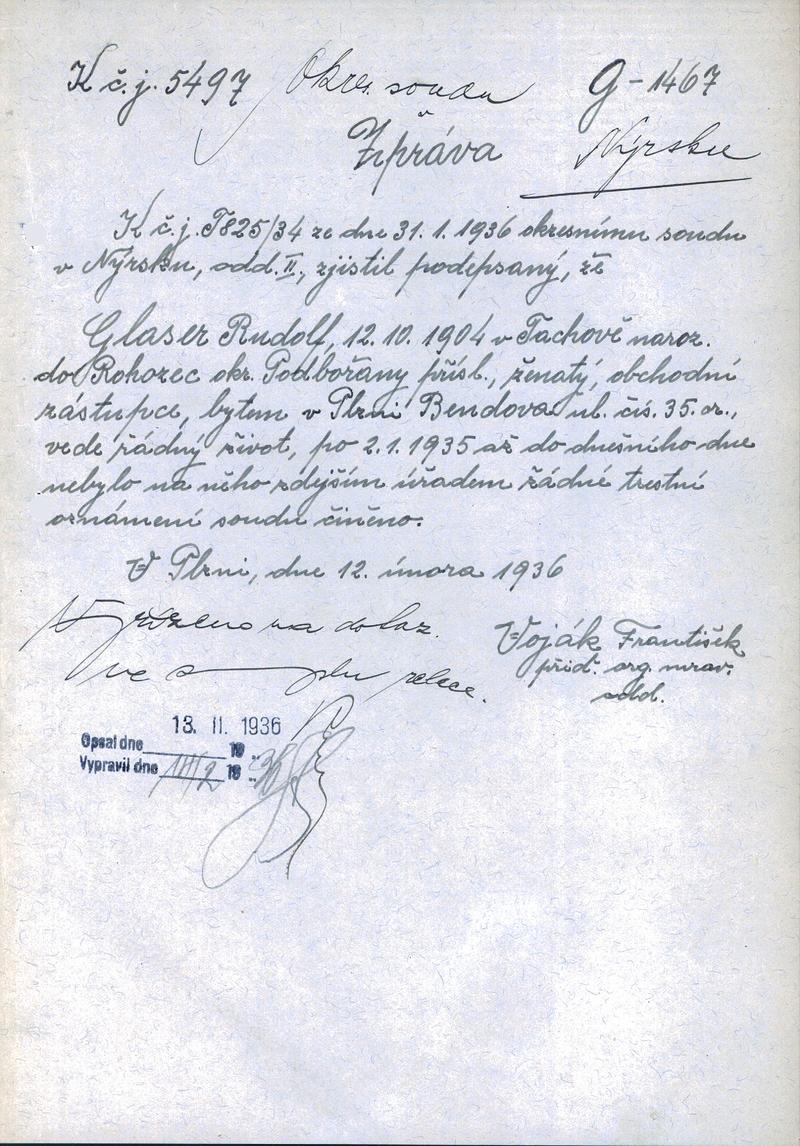 K č. j. 5497 Okres. soudu G-1467
v
Zpráva Nýrsku
K č. j. T825/34 ze dne 31. 1. 1936 okresnímu soudu
v Nýrsku, odd. II., zjistil podepsaný, že
Glaser Rudolf, 12. 10. 1904 v Tachově naroz.
do Rohozec okr. Podbořany přísl., ženatý, obchodní
zástupce, bytem v Plzni Bendova ul. čís. 35. or.,
vede řádný život, po 2. 1. 1935 až do dnešního dne
nebylo na něho zdejším úřadem žádné trestní
oznámení soudu činěno.
V Plzni, dne 12. února 1936
Vyřízeno na dotaz.
ve relace.
Voják František
přid. org. mrav.
odd.
13. II. 1936
Opsal dne 19
Vypravil dne 14/2 19 36